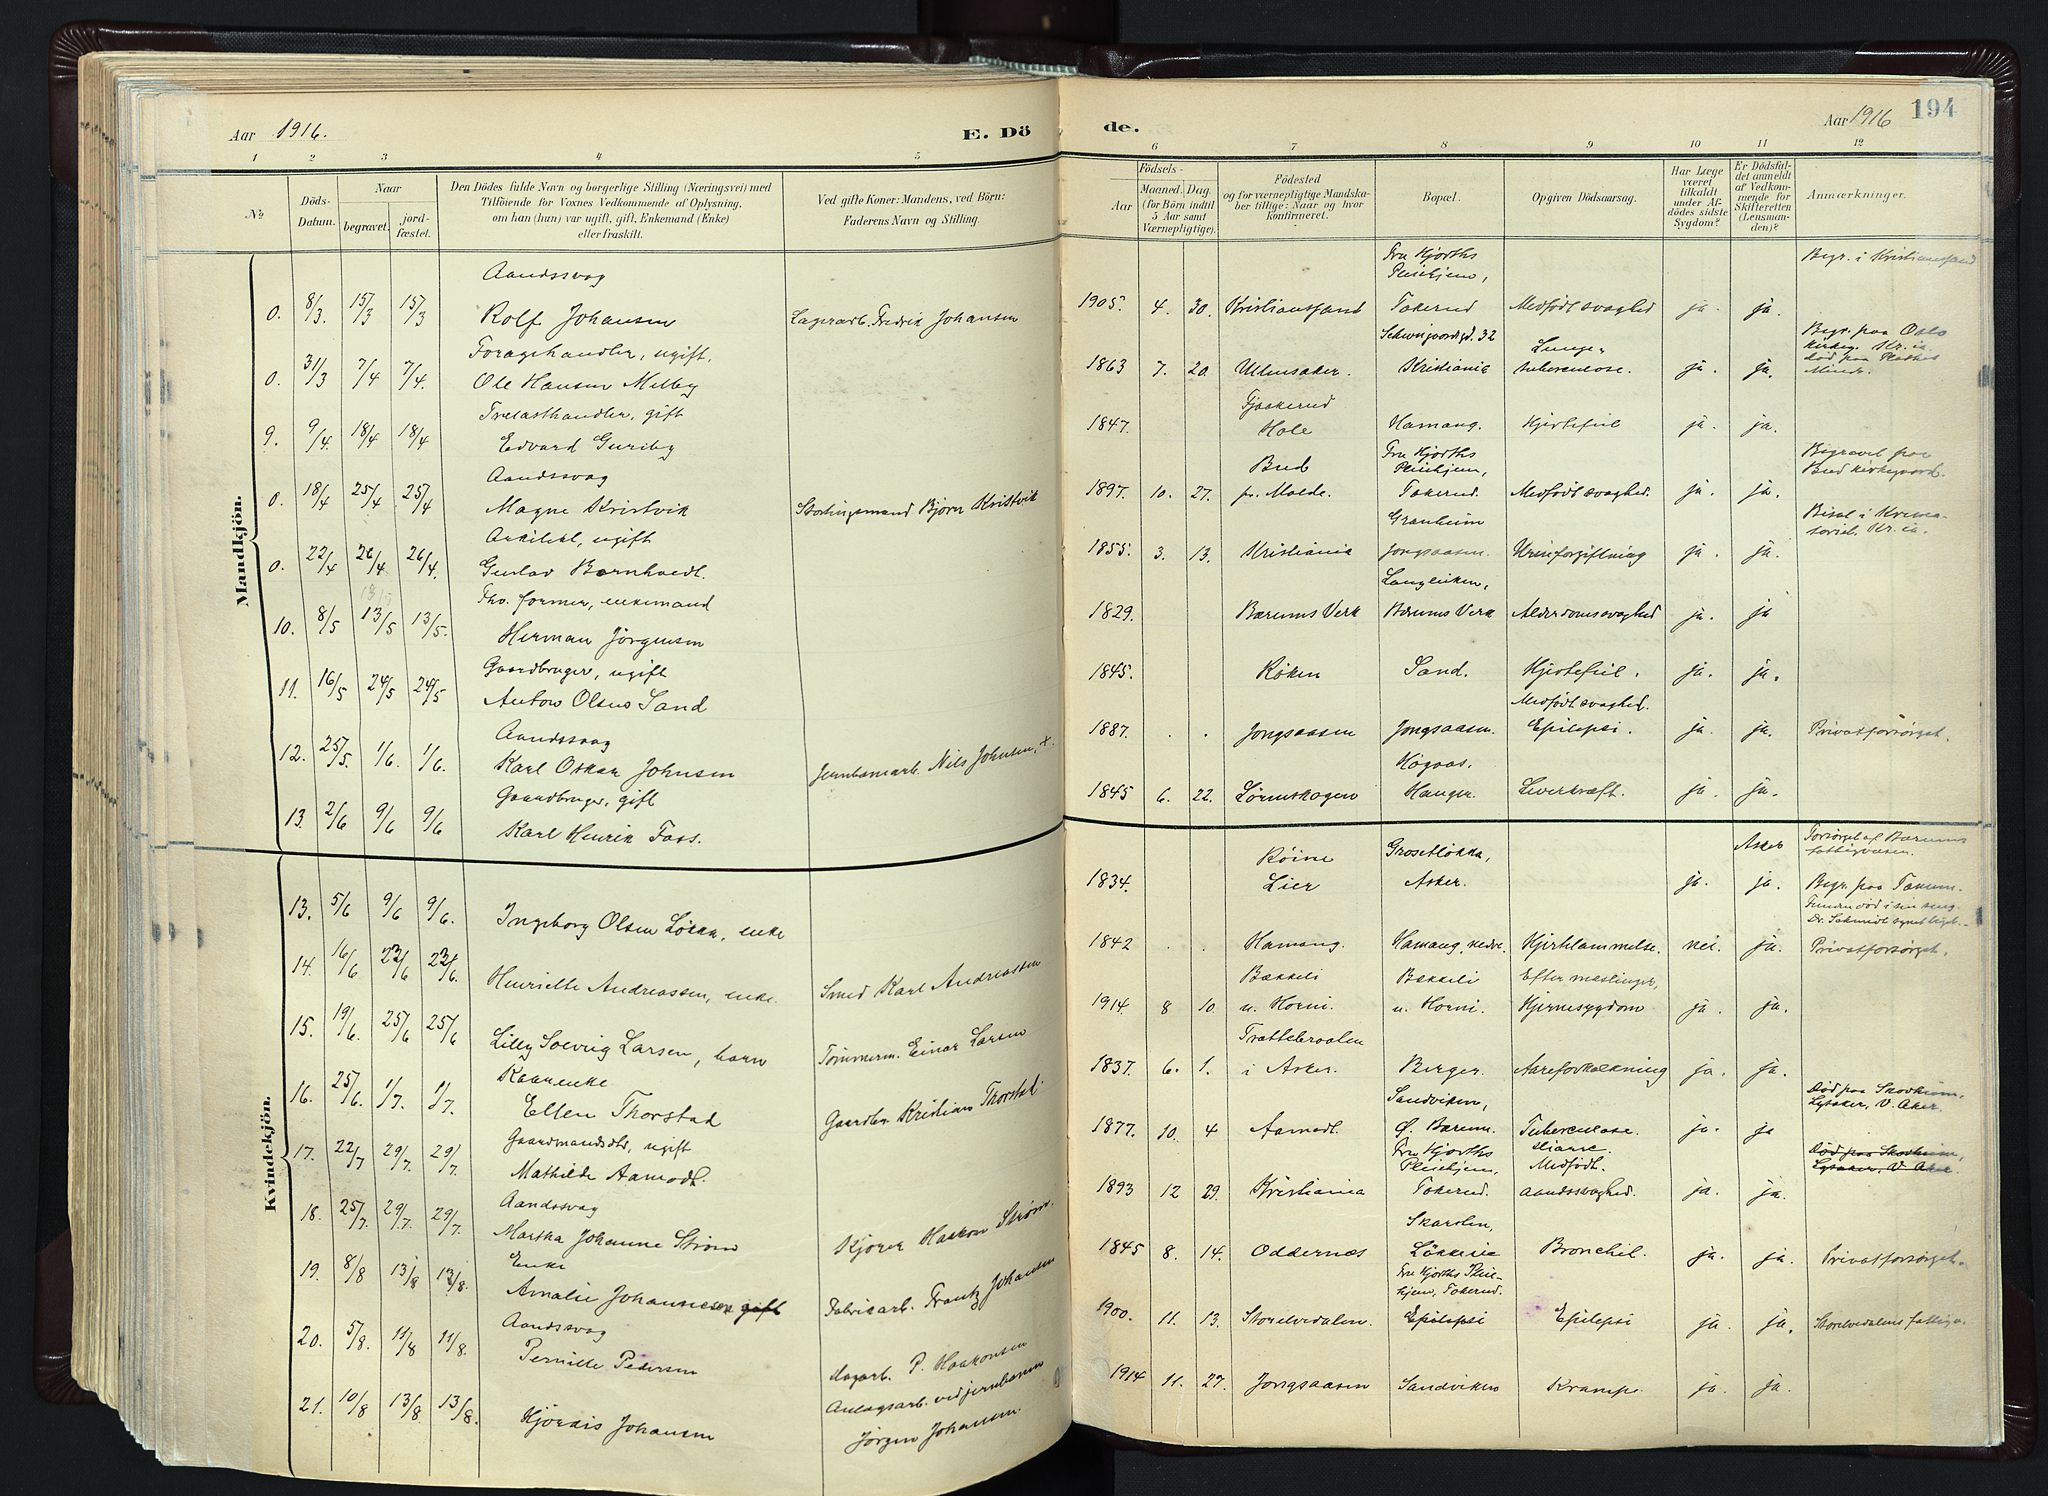 Aar 1916.
E. Dö
de.
Aar 1916
194
1 2 3 4 5 6 7 8 9 10 11 12
No.
Döds-
Datum.
Naar
begravet.
jord-
fæstet.
Den Dödes fulde Navn og borgerlige Stilling (Næringsvei) med
Tilföiende for Voxnes Vedkommende af Oplysning,
om han (hun) var ugift, gift, Enkemand (Enke)
eller fraskilt.
Ved gifte Koner: Mandens, ved Börn:
Faderens Navn og Stilling.
Födsels-
Aar
Maaned. Dag.
(for Börn indtil
5 Aar samt
Værnepligtige).
Födested
og for værnepligtige Mandska-
ber tillige: Naar og hvor
konfirmeret.
Bopæl.
Opgiven Dödsaarsag.
Har Læge
været
tilkaldt
under Af-
dödes sidste
Sygdom?
Er Dödsfal-
det anmeldt
af Vedkom-
mende for
Skifteretten
(Lensman-
den)?
Anmærkninger.
Mandkjön.
Aandssvag
Fru Hjorths
Pleiehjem,
Begr. i Kristianssand
0. 8/3 15/3 15/3 Rolf Johansen Lagerarb. Fredrik Johansen 1905. 4. 30. Kristianssand Tokerud Medfödt svaghed ja. ja.
Foragehandler, ugift.
Schweigaardsgd. 32
Lunge-
Begr. paa Oslo
kirkeg. Kr.ia
död paa
Minde
0. 31/3 7/4 7/4. Ole Hansen Melby 1863 7. 20. Ullensaker. Kristiania tuberculose. ja. ja.
Trelasthandler, gift
Fjækerud
9. 9/4. 18/4 18/4 Edvard Guriby 1847. Hole Hamang. Hjertefeil ja. ja.
Aandssvag
Bud
Fru Hjorths
Pleiehjem,
Begravet paa
Bud kirkegaard.
0. 18/4 25/4 25/4 Magne Kristvik Stortingsmand Björn Kristvik 1897. 10. 27. pr. Molde. Tokerud. Medfödt svaghed. ja. ja.
Arkitekt, ugift
Granheim
Bisat i Krema-
toriet, Kr.ia.
0. 22/4 26/4 26/4. Gustav Bornhoedt. 1855. 3. 13. Kristiania Jongsaasen. Urinforgiftning ja. ja.
Fhv. former, enkemand
Langleiken,
10. 8/5 13/5 13/5. Herman Jörgensen 1829. Bærums Verk Bærums Verk Alderdomssvaghed ja. ja
Gaardbruger, ugift
11. 16/5 24/5 24/5 Anton Olsen Sand 1845. Röken Sand. Hjertefeil. ja. ja.
Aandssvag
Medfödt svaghed.
12. 25/5. 1/6. 1/6. Karl Oskar Johnsen Jernbanearb. Nils Johnsen, +. 1887. . . Jongsaasen Jongsaasen. Epilepsi. ja. ja. Privatforsörget.
Gaardbruger, gift
Högaas.
13. 2/6 9/6 9/6 Karl Henrik Foss. 1845 6. 22. Lörenskogen Hanger. Leverkræft. ja. ja.
Kvindekjön.
Röine
Grosetlökka,
Asker
Forsörget af Bærums
fattigvæsen.
13. 5/6 9/6 9/6. Ingeborg Olsen Løkka, enke 1834. Lier Asker. ja. ja. Begr. paa Tanum.
Funden död i sin seng.
14. 16/6 23/6 23/6. Henriette Andreassen, enke. Smed Karl Andreassen 1842 . . Hamang. Hamang, nedre. Hjertelammelse. nei. ja. Privatforsörget.
Bækkeli
Bekkeli
Efter meslinger,
15. 19/6. 25/6 25/6 Lilly Solveig Larsen, barn Tömmerm. Einar Larsen 1914. 8 10. u. Horni. u. Horni. Hjernesygdom ja. ja.
Kaarenke
Trættebraaten
16. 25/6. 1/7. 1/7. Ellen Thorstad Gaardbr. Kristian Thorstad 1837. 6. 1. i Asker. Berger. Aareforkalkning ja. ja.
Gaardmandsdtr, ugift
Sandviken,
Död paa Skovheim,
Lysaker, V. Aker.
17. 22/7 29/7 29/7. Mathilde Aamodt. 1877. 10. 4 Aamodt. Ö. Bærum. Tuberculose. ja. ja
Aandssvag
Fru Hjorths
Pleiehjem,
Medfödt.
Död paa Skovheim,
Lysaker, V. Aker.
18. 25/7. 29/7. 29/7. Martha Johanne Ström Kjörer Haakon Ström. 1893 12 29. Kristiania Tokerud. aandssvaghed. ja. ja.
Enke
Skarsten,
19. 8/8 13/8 13/8. Amalie Johannesen gift Fabrikarb. Frantz Johansen 1845 8. 14. Oddernæs Lökkeia Bronchit. ja. ja. Privatforsörget.
Aandssvag
Fru Hjorths Pleie-
hjem, Tokerud.
20. 5/8. 11/8 11/8. Pernille Pedersen Dagarb. P. Haakonsen 1900. 11. 13. Storelvedalen. Epilepsi Epilepsi ja. ja. Storelvedalens fattigv.
Anlægsarb. ved jernbanen
21. 10/8 13/8 13/8. Hjördis Johansen Jörgen Johansen. 1914 11. 27. Jongsaasen Sandviken Krampe. ja. ja.